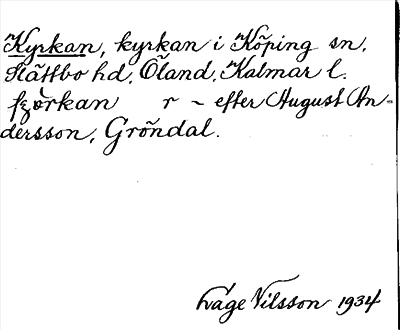 Kyrkan, kyrkan i Köping sn,
Slättbo hd, Öland, Kalmar l.
r ~ efter August An-
dersson, Gröndal.
Nilsson 1934